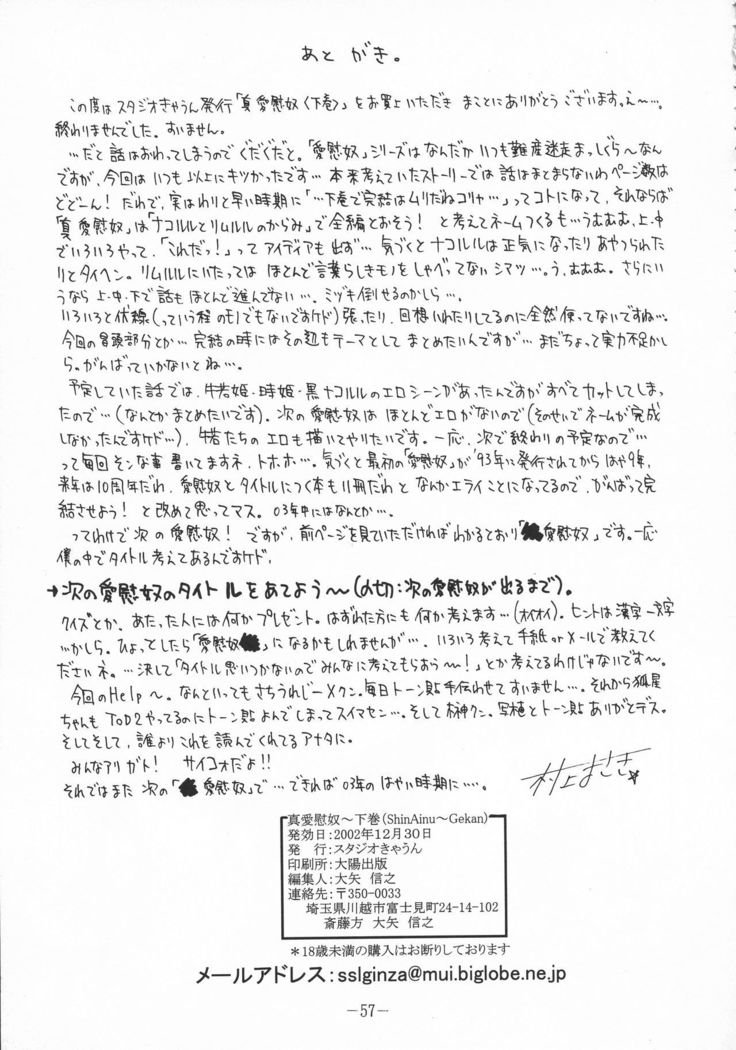 あとがき。
この度はスタジオきゃうん発行「真愛慰奴〈下巻〉」をお買上いただき まことにありがとうございます。え〜…。
終わりませんでした。すいません。
…だと話はおわってしまうのでぐだぐだと。「愛慰奴」シリーズはなんだかいつも難産迷走まっしぐら〜なん
ですが、今回はいつも以上にキツかったです… 本来考えていたストーリーでは話はまとまらないわページ数は
どどーん! だわで、実はわりと早い時期に「…下巻で完結はムリだねコリャ…」ってコトになって、それならば
「真愛慰奴」は「ナコルルとリムルルのからみ」で全編とおそう! と考えてネームつくるも…うむむむ、上・中
でいろいろやって、「これだっ!」ってアイディアも出ず… 気づくとナコルルは正気になったりあやつられた
りとタイヘン。リムルルにいたっては ほとんど言葉らしきモノをしゃべってないシマツ…。う、むむむ。さらにい
うなら上・中・下で話もほとんど進んでない…。ミヅキ倒せるのかしら…。
いろいろと伏線(っていう程のモノでもないですケド)張ったり、回想いれたりしてるのに全然使ってないですね…。
今回の冒頭部分とか… 完結の時にはその辺もテーマとしてまとめたいんですが… まだちょって実力不足かし
ら。がんばっていかないとね…。
予定していた話では、牛若姫・時姫・黒ナコルルのエロシーンがあったんですがすべてカットしてしまっ
たので…(なんとかまとめたいです)。次の愛慰奴は ほとんどエロがないので(そのせいでネームが完成
しなかったんですケド…)、牛若たちのエロも描いてやりたいです。一応、次で終わりの予定なので…
って毎回そンな事書いてますネ、トホホ…。気づくと最初の「愛慰奴」が'93年に発行されてからはや9年、
来年は10周年だわ、愛慰奴とタイトルにつく本も11冊だわ となんかエライことになってるので、がんばって完
結させよう! と改めて思ってマス。03年中にはなんとか…。
ってわけで次の愛慰奴! ですが、前ページを見ていただければわかるとおり「愛慰奴」です。一応
僕の中でタイトル考えてあるんですケド、
→次の愛慰奴のタイトルをあてよう〜(〆切:次の愛慰奴が出るまで)。
クイズとか、あたった人には何かプレゼント。はずれた方にも何か考えます…(オイオイ)。ヒントは漢字一文字
…かしら。ひょっとしたら「愛慰奴」になるかもしれませんが…、いろいろ考えて手紙orメールで教えてく
ださいネ。…決して「タイトル思いつかないのでみんなに考えてもらおう〜!」とか考えてるわけじゃないです〜。
今回のHelp〜。なんといってもさちうれじーメクン。毎日トーン貼手伝わせてすいません…。それから狐星
ちゃんもToD2やってるのにトーン貼よんでしまってスイマセン…。そして榊クン。写植とトーン貼ありがとデス。
そしてそして、誰よりこれを読んでくれてるアナタに。
みんなアリガト! サイコォだよ!!
それではまた 次の「愛慰奴」で…できれば03年のはやい時期に…。
村上まさき
真愛慰奴〜下巻(ShinAinu〜Gekan)
発効日:2002年12月30日
発 行:スタジオきゃうん
印刷所:大陽出版
編集人:大矢 信之
連絡先:〒350-0033
埼玉県川越市富士見町24-14-102
斎藤方 大矢 信之
*18歳未満の購入はお断りしております
メールアドレス:sslginza@mui.biglobe.ne.jp
―57―